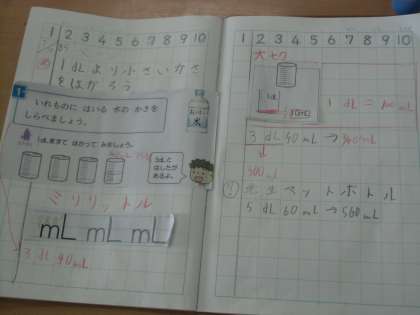 1 2 3 4 5 6 7 8 9 10
1dLより小さいかさ
をはかろう
1
いれものに はいる 水の かさを
しらべましょう。
1dLますで はかって みましょう。
1dLに
はしたが
あるよ。
ミリリットル
mL mL mL
3dL40mL
1 2 3 4 5 6 7 8 9 10
1dL
1dL=100mL
3dL40mL→340mL
300mL
ペットボトル
5dL60mL→560mL